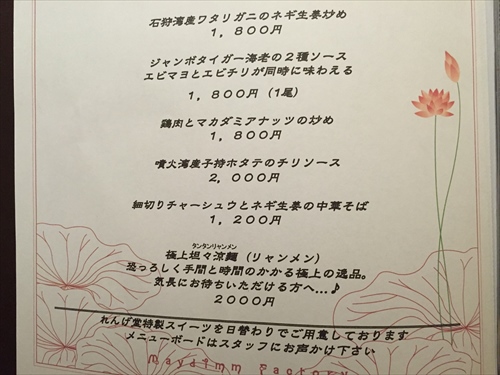 石狩湾産ワタリガニのネギ生姜炒め
1,800円
ジャンボタイガー海老の2種ソース
エビマヨとエビチリが同時に味わえる
1,800円(1尾)
鶏肉とマカダミアナッツの炒め
1,800円
噴火湾産子持ホタテのチリソース
2,000円
細切りチャーシュウとネギ生姜の中華そば
1,200円
タンタンリャンメン
極上坦々涼麺(リャンメン)
恐っろしく手間と時間のかかる極上の逸品。
気長にお待ちいただける方へ…♪
2000円
れんげ堂特製スイーツを日替わりでご用意しております
メニューボードはスタッフにお声かけ下さい